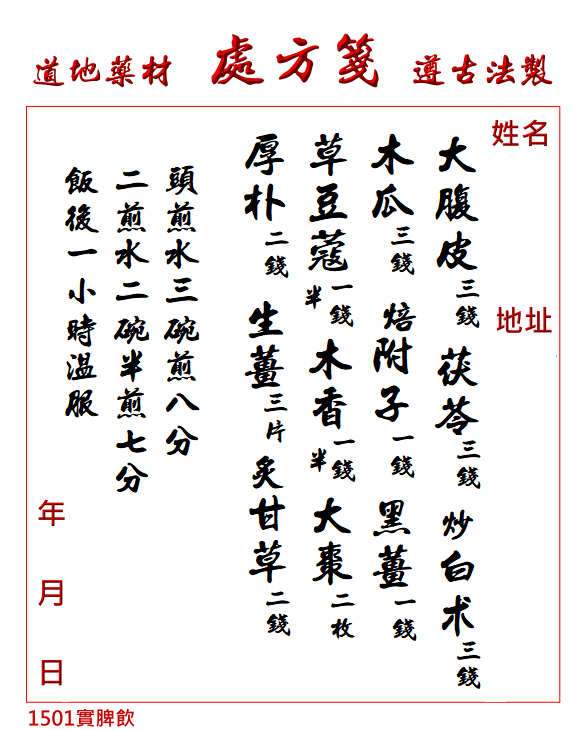 道地藥材 處方箋 遵古法製
姓名
地址
大腹皮三錢 茯苓三錢 炒白术三錢
木瓜三錢 焙附子一錢 黑薑一錢
草豆蔻一錢半 木香一錢半 大棗二枚
厚朴二錢 生薑三片 炙甘草二錢
頭煎水三碗煎八分
二煎水二碗半煎七分
飯後一小時溫服
年 月 日
1501實脾飲